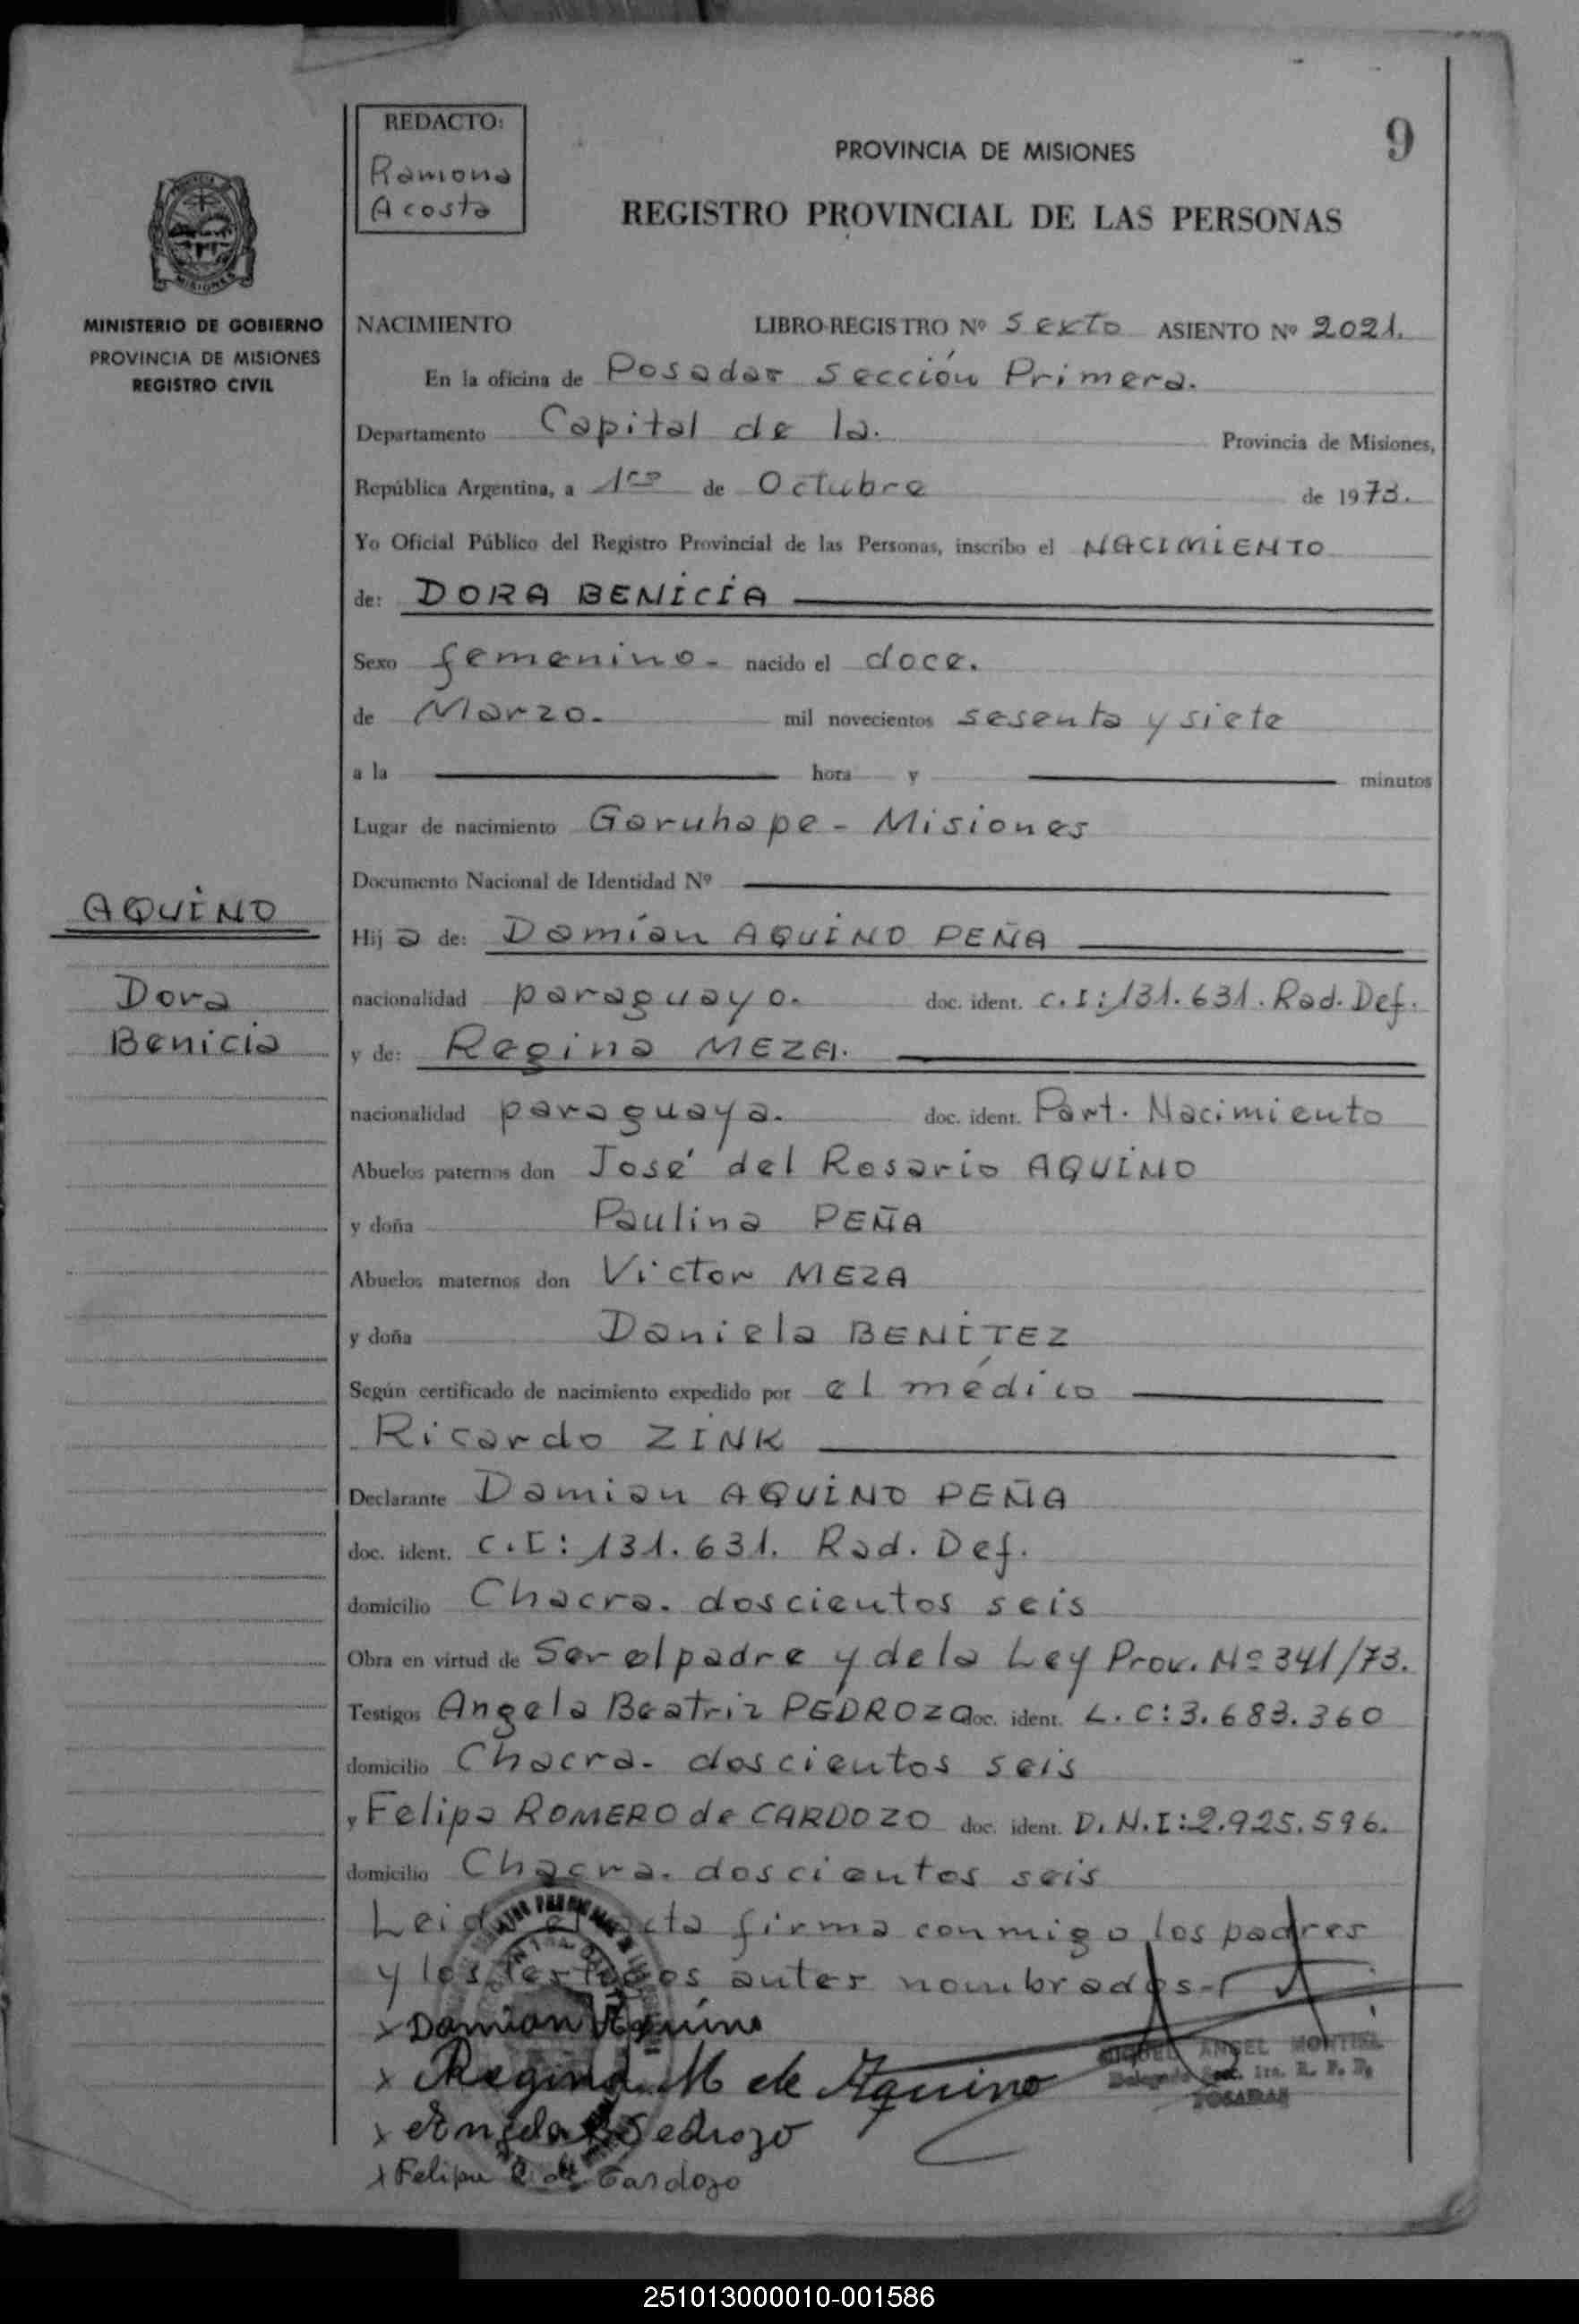 REDACTO:
Ramona
Acosta
9
PROVINCIA DE MISIONES
REGISTRO PROVINCIAL DE LAS PERSONAS
MINISTERIO DE GOBIERNO
PROVINCIA DE MISIONES
REGISTRO CIVIL
NACIMIENTO LIBRO-REGISTRO Nº Sexto ASIENTO Nº 2021.
En la oficina de Posadas Sección Primera.
Departamento Capital de la. Provincia de Misiones,
República Argentina, a 1ro de Octubre de 1973.
Yo Oficial Público del Registro Provincial de las Personas, inscribo el NACIMIENTO
de: DORA BENICIA
Sexo femenino- nacido el doce.
de Marzo. mil novecientos sesenta y siete
a la hora y minutos
Lugar de nacimiento Garuhape - Misiones
Documento Nacional de Identidad Nº
AQUINO
Dora
Benicia
Hija de: Damían AQUINO PEÑA
nacionalidad paraguayo. doc. ident. C.I: 131.631. Rad. Def.
y de: Regina MEZA.
nacionalidad paraguaya. doc. ident. Part. Nacimiento
Abuelos paternos don José del Rosario AQUINO
y doña Paulina PEÑA
Abuelos maternos don Victor MEZA
y doña Daniela BENITEZ
Según certificado de nacimiento expedido por el médico
Ricardo ZINK
Declarante Damian AQUINO PEÑA
doc. ident. C.I: 131.631. Rad. Def.
domicilio Chacra. doscientos seis
Obra en virtud de Ser el padre y de la Ley Prov. Nº 341/73.
Testigos Angela Beatriz PEDROZO doc. ident. L.C: 3.683.360
domicilio Chacra. doscientos seis
y Felipa ROMERO de CARDOZO doc. ident. D.N.I: 2.925.596.
domicilio Chacra. doscientos seis
Leida el acta firma conmigo los padres
y los testigos antes nombrados-
x Damian Aquino
x Regina M de Aquino
MIGUEL ANGEL MONTIEL
Delegado Secc. 1ra. R. P. P.
POSADAS
x Angela B Pedrozo
x Felipa R de Cardozo
251013000010-001586